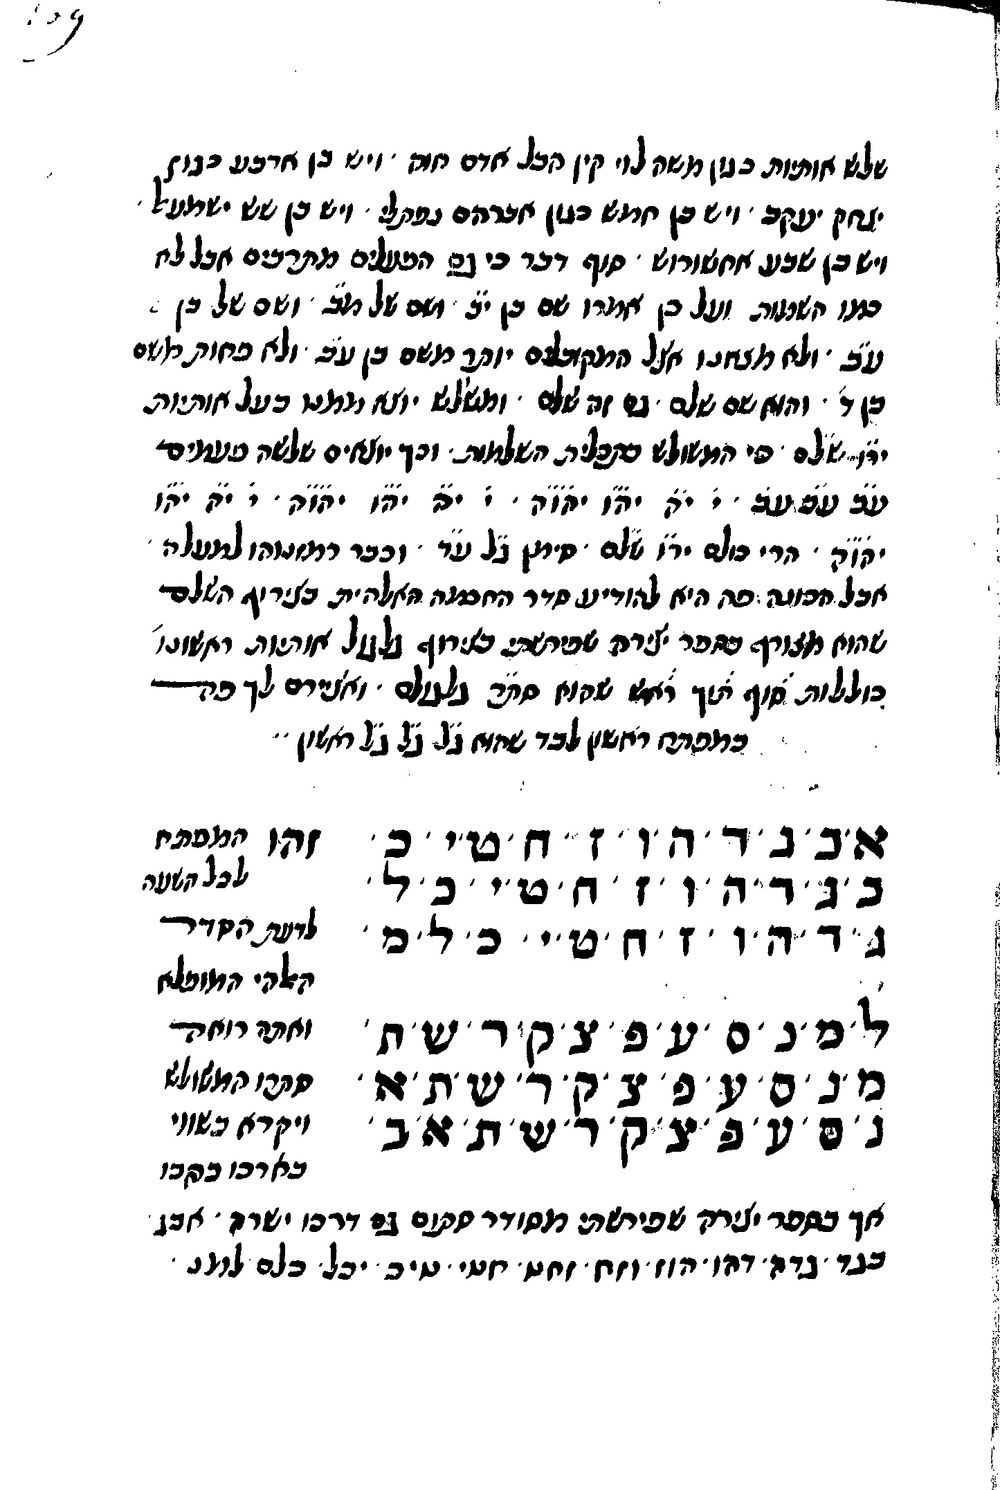 109
שלש אותיות כגון משה לוי קין הבל אדם חוה · ויש בן ארבע כגון
יצחק יעקב · ויש בן חמש כגון אברהם נפתלי · ויש בן שש ישמעאל ·
ויש בן שבע אחשורוש · סוף דבר כי גם הפעלים מתרבים אבל לא
כמו השמות ועל כן אמרו שם בן י״ב · ושם של מ״ב · ושם של בן
ע״ב · ולא מצאנו אצל המקובלים יותר משם בן ע״ב · ולא פחות משם
בן ד׳ · והוא שם שלם · גם זה שלם · ומשלש יוצא ממנו בעל אותיות
יר״ו שלם · פי המשולש בתכלית השלמות · וכך יוצאים שלשה פעמים
ע״ב ע״ב ע״ב · י׳ י״ה יה״ו יהו״ה · י׳ י״ה יה״ו יהו״ה · י׳ י״ה יה״ו
יהו״ה · הרי כולם יר״ו שלם · סימן ג״ל ע״ד · וכבר רמזנוהו למעלה ·
אבל הכוונה פה היא להודיע סדר החכמה האלהית בצירוף השלם
שהוא מצורף בספר יצירה שפירשתי בצירוף גלגול אותיות ראשונו׳
כוללות סוף תוך ראש שהוא סת״ר גלגולם · ואצייرם לך פה
במפתח ראשון לבד שהוא ג״ל ג״ל ג״ל ראשון
א · ב · ג · ד · ה · ו · ז · ח · ט · י · כ · זהו המפתח
ב · ג · ד · ה · ו · ז · ח · ט · י · כ · ל · לכל השעה
ג · ד · ה · ו · ז · ח · ט · י · כ · ל · מ · לדעת הסדר
האלהי המופלא
ל · מ · נ · ס · ע · פ · צ · ק · ר · ש · ת · ואתה רואה
מ · נ · ס · ע · פ · צ · ק · ר · ש · ת · א · סתרו המשולש
נ · ס · ע · פ · צ · ק · ר · ש · ת · א · ב · ויקרא בשווי
בארכו ברחבו
אך בספר יצירה שפירשתי מסודר סתום גם דרכו ישרה · אבג ·
בגד · גדה · דהו · הוז · וזח · זחט · חטי · טיכ · יכל · כלם · למנ ·